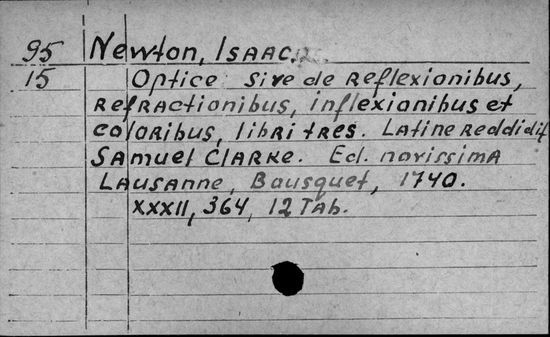 95 Newton, Isaac.
15 Optice sive de Reflexionibus,
Refractionibus, inflexionibus et
coloribus, libri tres. Latine Reddidit
Samuel Clarke. Ed. novissima
Lausanne, Bousquet, 1740.
XXXII, 364, 12 Tab.